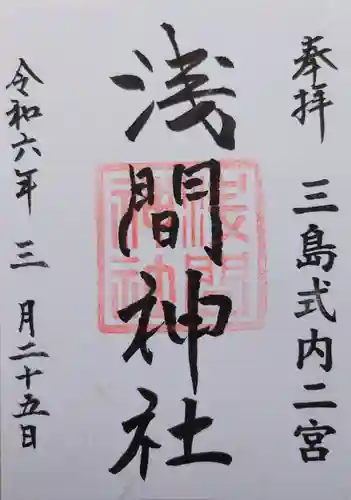 奉拝　三島式内二宮
浅間神社
令和六年三月二十五日
浅間
神社